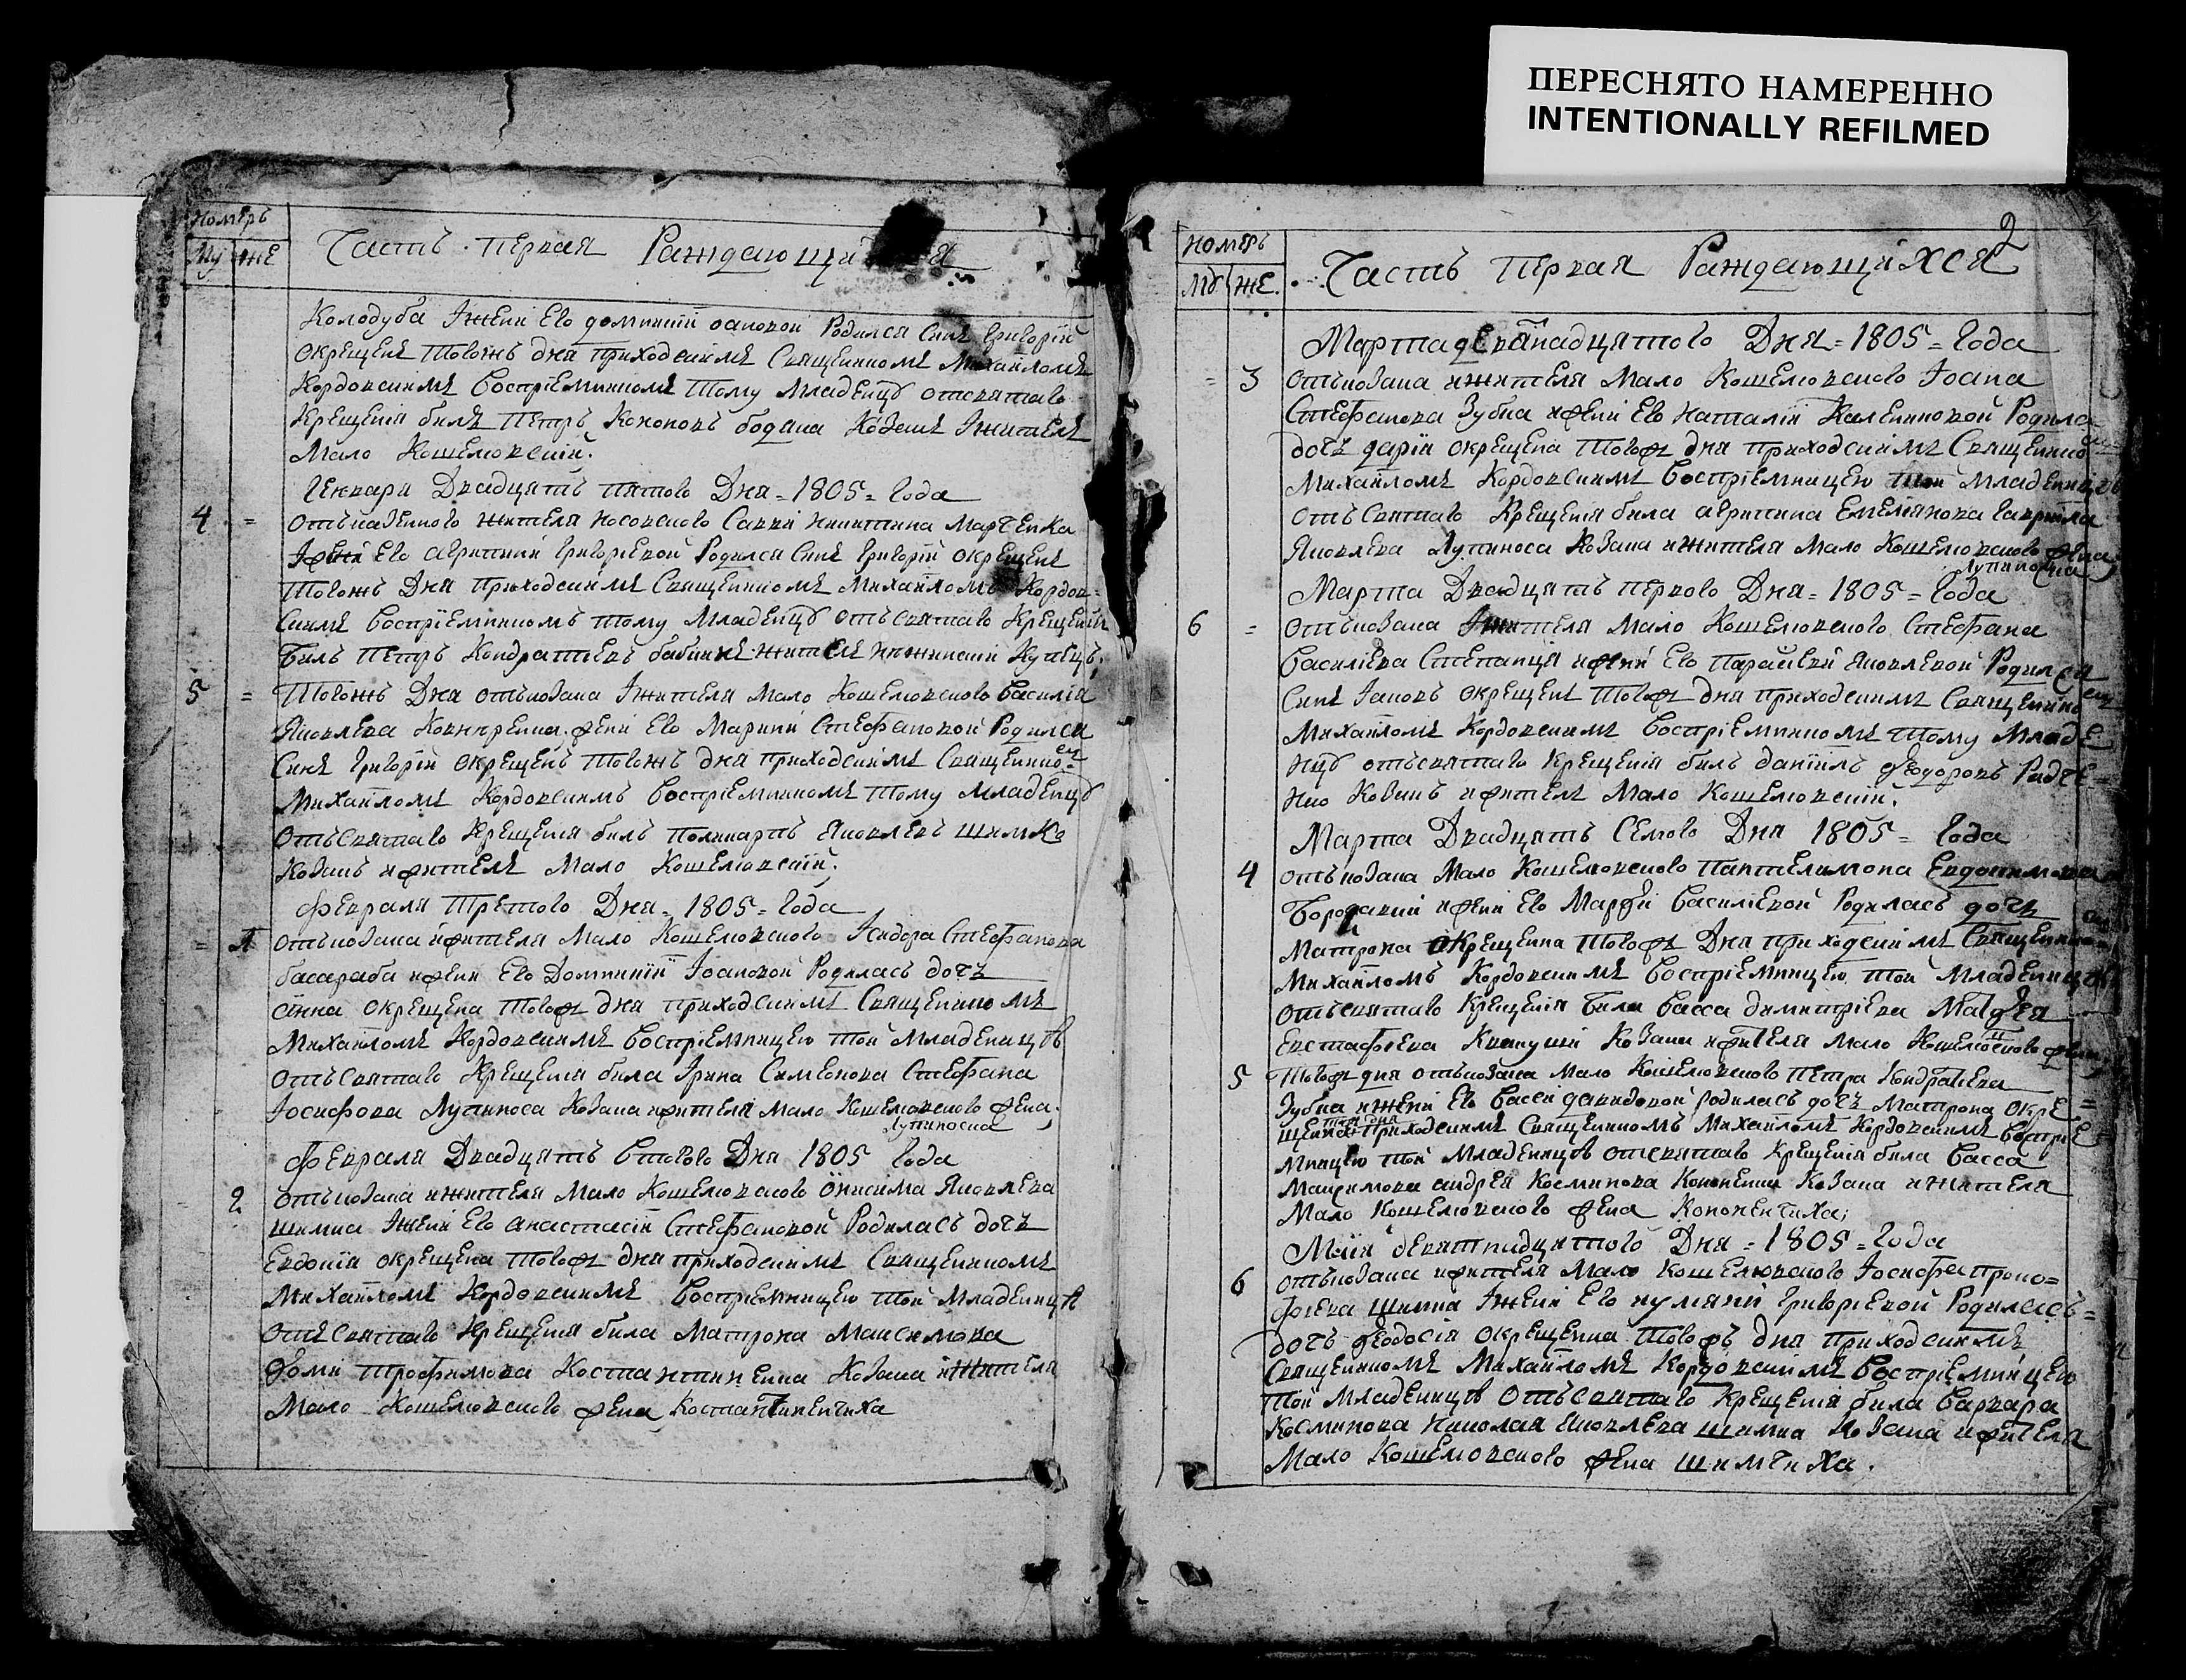 ПЕРЕСНЯТО НАМЕРЕННО
INTENTIONALLY REFILMED
номеръ
му же
Часть первая Раждающи
Колодуба Ижени Его домникіи оановой Родился Синъ Григорій
окрещенъ тогожъ дня приходскимъ Священникомъ Михайломъ
Кордовскимъ воспріемникомъ тому младенцу отсвятаго
Крещенія билъ Петръ Кононовъ бодана Козакъ Ижитель
Мало Кошелювскій.
Генваря Двадцять пятого Дня = 1805 = Года
4 = отъказенного жителя носовского Савви Никитина Марченка
Ижени Его Агрипини Григоріевой Родился Синъ Григорій окрещенъ
тогожъ Дня приходскимъ Священникомъ Михайломъ Кордов-
скимъ воспріемникомъ тому младенцу отъсвятаго Крещенія
билъ Петръ Кондратіевъ житель нѣжинскій Купецъ.
5 = тогожъ Дня отъкозака Ижителя Мало Кошелювского Василія
Яковлева жени Его Марини Стефановой Родился
Синъ Григорій окрещенъ тогожъ дня приходскимъ Священником
Михайломъ Кордовскимъ воспріемникомъ тому младенцу
отъсвятаго Крещенія билъ Поликарпъ Яковлевъ шимко
Козакъ ижитель Мало Кошелювскій.
Февраля третого Дня = 1805 = Года
= 1 отъкозака ижителя Мало Кошелювского Исидора Стефанова
басараба ижени Его Домникіи Іоановой Родилась дочъ
анна окрещена тогожъ дня приходскимъ Священникомъ
Михайломъ Кордовскимъ воспріемницею той младеницѣ
отъсвятаго Крещенія била Ірина Симеонова Стефана
Іосифова Лупиноса Козака ижителя мало Кошелювского жена
Лупиносиа
Февраля Двадцять Второго Дня 1805 Года
2 отъкозака ижителя Мало Кошелювского онисима Яковлева
шимка Ижени Его анастасіи Стефановой Родилась дочъ
Евдокія окрещена тогожъ дня приходскимъ Священникомъ
Михайломъ Кордовскимъ воспріемницею той младеницѣ
отъ святаго Крещенія била Матрона Максимова
Фоми Трофимова Костантиненка Козака ижителя
Мало Кошелювского жена Костантиненчиха
2
номеръ
му же.
Часть первая Раждающихся
Марта девятнадцятого Дня = 1805 = Года
= 3 отъкозака ижителя Мало Кошелювского Іоана
Стефанова Зубка ижени Его Наталіи Калениковой Родила
дочъ дарія окрещена тогожъ дня приходскимъ Священнико
Михайломъ Кордовскимъ воспріемницею той младеницѣ
отъ святаго Крещенія била агрипина Емеліянова Гаврила
Яковлева Лупиноса Козака ижителя Мало Кошелювского жена
Марта Двадцять первого Дня = 1805 = Года
6 = отъкозака Ижителя Мало Кошелювского Стефана
Василіева Степанця ижени Его Параскеви Яковлевой Родился
Синъ Іаковъ окрещенъ тогожъ дня приходскимъ Священнико
Михайломъ Кордовскимъ воспріемникомъ тому младе
нцу отъсвятаго Крещенія билъ даніилъ Феодоровъ Радче-
нко Козакъ ижитель Мало Кошелювскій.
Марта Двадцять Семого Дня 1805 = Года
4 отъкозака Мало Кошелювского Пантелимона Евдокимова
Бородавки ижени Его Марфи Василіевой Родилась дочъ
Матрона окрещенна тогожъ Дня приходскимъ Священни
Михайломъ Кордовскимъ воспріемницею той младеницѣ
отъсвятаго Крещенія била Васса димитріева
Евстафіева Козака ижителя Мало Кошелювского жена
5 тогожъ дня отъкозака Мало Кошелювского Петра Кондратіева
Зубка ижени Его Васси давидовой родилась дочъ Матрона окре
щенна приходскимъ Священникомъ Михайломъ Кордовскимъ воспріе
мницею той младеницѣ отсвятаго Крещенія била Васса
Максимова андрея Косминова Кононенка Козака ижителя
Мало Кошелювского жена Кононенчиха;
Маія девятнадцятого Дня = 1805 = Года
6 отъкозака ижителя Мало Кошелювского Іосифа проко=
фіева шимка Ижени Его Григоріевой Родилась=
дочъ феодосія окрещенна тогожъ дня приходскимъ
Священникомъ Михайломъ Кордовскимъ воспріемницею
той младеницѣ отъсвятаго Крещенія била Варвара
Косминова Николая Яковлева шимка Козака ижителя
Мало Кошелювского жена шимчиха.